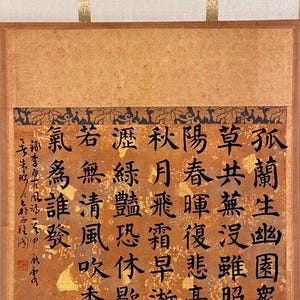 孤蘭生幽園衆
草共蕪沒雖照
陽春暉復悲高
秋月飛霜早淅
瀝緑豔恐休歇
若無清風吹香
氣爲誰發
録李白古風詩